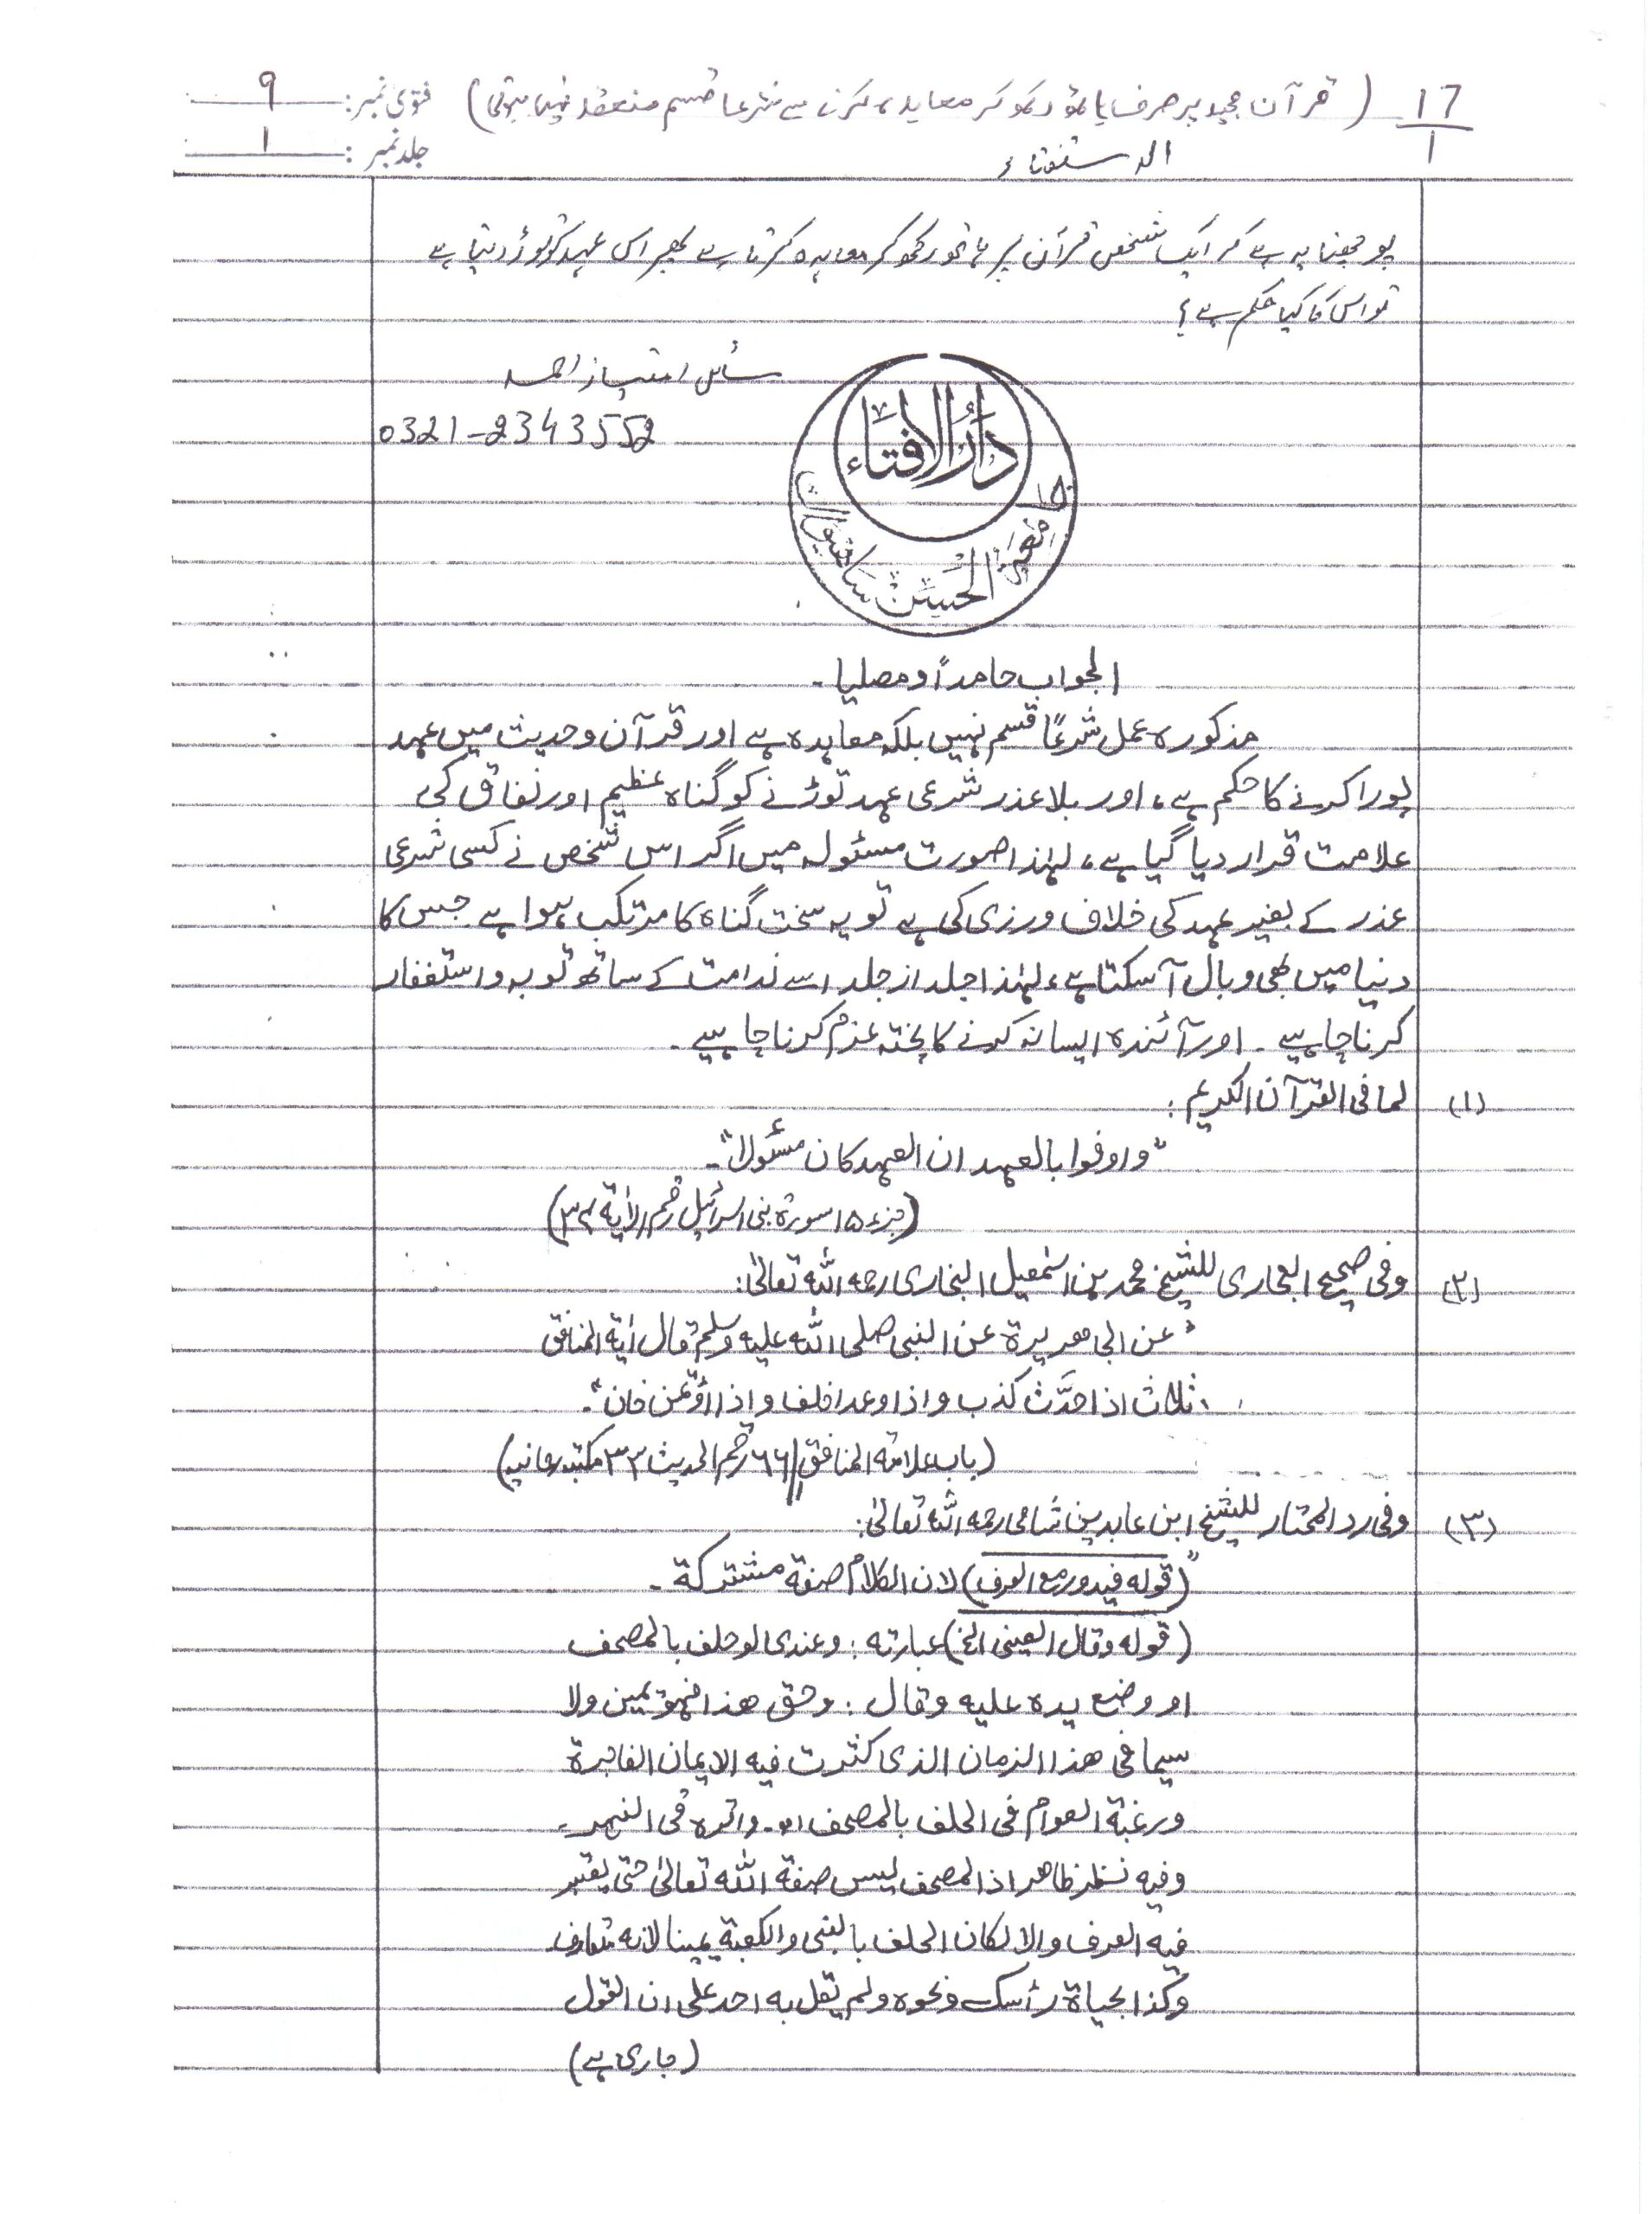 17/1 (قرآن مجید پر صرف ہاتھ رکھ کر معاہدہ کرنے سے شرعا قسم منعقد نہیں ہوتی) فتویٰ نمبر: ۹
الاستفتاء جلد نمبر: ۱
پوچھنا یہ ہے کہ ایک شخص قرآن پر ہاتھ رکھ کر معاہدہ کرتا ہے پھر اس عہد کو توڑ دیتا ہے
تو اس کا کیا حکم ہے؟
سائل امتیاز احمد
0321-2343552
دار الافتاء
جامعۃ الحسن ساہیوال
الجواب حامداً و مصلیا۔
مذکورہ عمل شرعًا قسم نہیں بلکہ معاہدہ ہے اور قرآن و حدیث میں عہد
پورا کرنے کا حکم ہے، اور بلا عذر شرعی عہد توڑنے کو گناہ عظیم اور نفاق کی
علامت قرار دیا گیا ہے، لہٰذا صورت مسئولہ میں اگر اس شخص نے کسی شرعی
عذر کے بغیر عہد کی خلاف ورزی کی ہے تو یہ سخت گناہ کا مرتکب ہوا ہے جس کا
دنیا میں بھی وبال آ سکتا ہے، لہٰذا جلد از جلد اسے ندامت کے ساتھ توبہ و استغفار
کرنا چاہیے۔ اور آئندہ ایسا نہ کرنے کا پختہ عزم کرنا چاہیے۔
(۱) لما فی القرآن الکریم:
"واوفوا بالعہد ان العہد کان مسئولا"۔
(جزء ۱۵ سورۃ بنی اسرائیل رقم الآیۃ ۳۴)
(۲) وفی صحیح البخاری للشیخ محمد بن اسمٰعیل البخاری رحمہ اللہ تعالیٰ:
"عن ابی ھریرۃ عن النبی صلی اللہ علیہ وسلم قال اٰیۃ المنافق
ثلاث اذا حدَّث کذب و اذا وعد اخلف و اذا اؤتمن خان"۔
(باب علامۃ المنافق//۶۶ رقم الحدیث ۳۳ مکتبہ رحمانیہ)
(۳) وفی رد المحتار للشیخ ابن عابدین شامی رحمہ اللہ تعالیٰ:
"(قولہ فیدور مع العرف) لان الکلام صفۃ مشترکۃ۔
(قولہ وقال العینی الخ) عبارتہ: وعندی لو حلف بالمصحف
او وضع یدہ علیہ وقال: وحق ھذا فھو یمین ولا
سیما فی ھذا الزمان الذی کثرت فیہ الایمان الفاجرۃ
ورغبۃ العوام فی الحلف بالمصحف اھ۔ واقرہ فی النھر،
وفیہ نظر ظاھر اذ المصحف لیس صفۃ اللہ تعالیٰ حتی یعتبر
فیہ العرف والا لکان الحلف بالنبی والکعبۃ یمینا لانہ متعارف
وکذا بحیاۃ رأسک ونحوہ ولم یقل بہ احد علی ان القول
(جاری ہے)